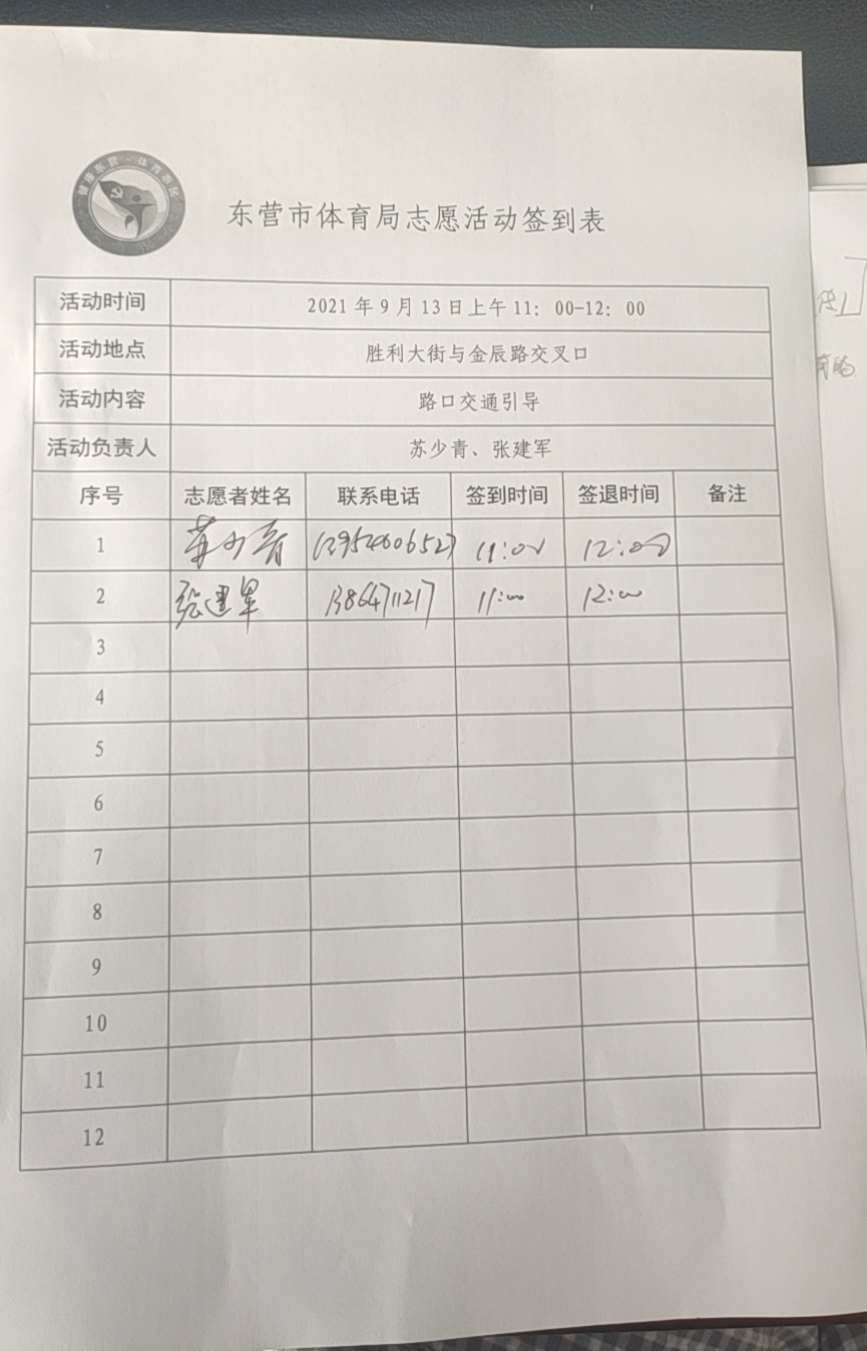 东营市体育局志愿活动签到表
活动时间 2021年9月13日上午11：00-12：00
活动地点 胜利大街与金辰路交叉口
活动内容 路口交通引导
活动负责人 苏少青、张建军
序号 志愿者姓名 联系电话 签到时间 签退时间 备注
1 苏少青 13954606527 11:00 12:00
2 张建军 13864711217 11:00 12:00
3
4
5
6
7
8
9
10
11
12